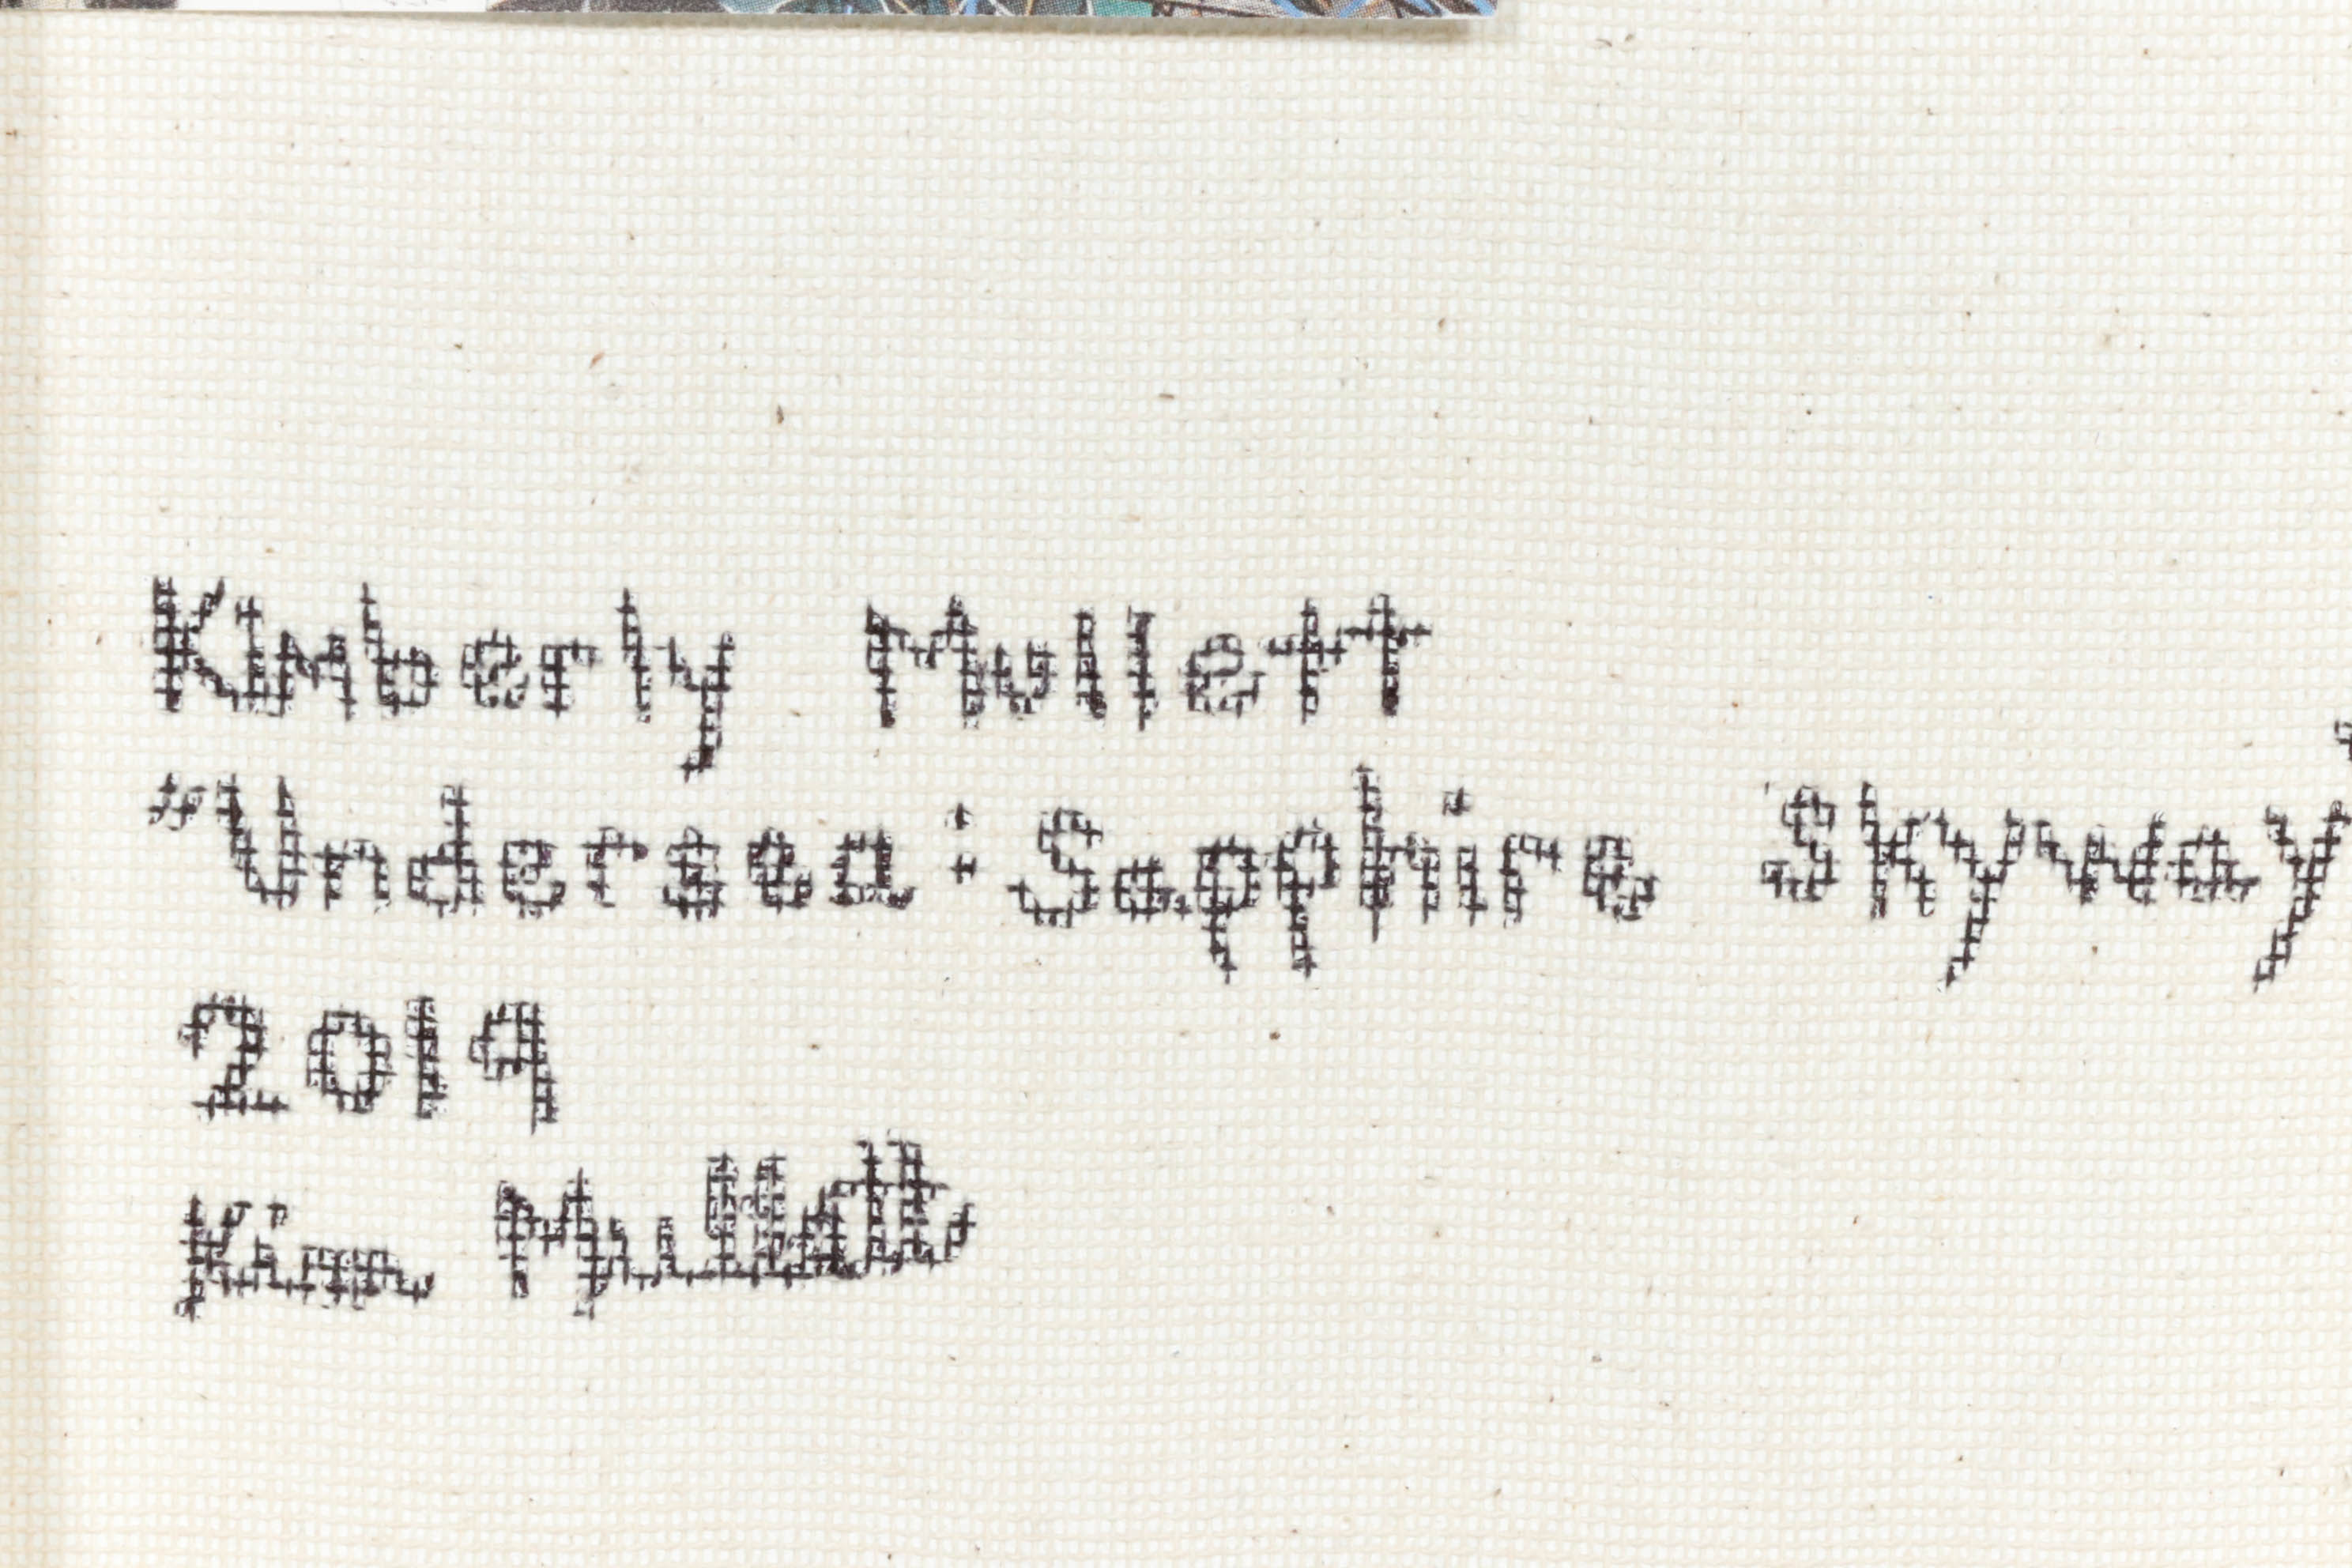 Kimberly Mullett
"Undersea: Sapphire Skyway"
2019
Kim Mullett